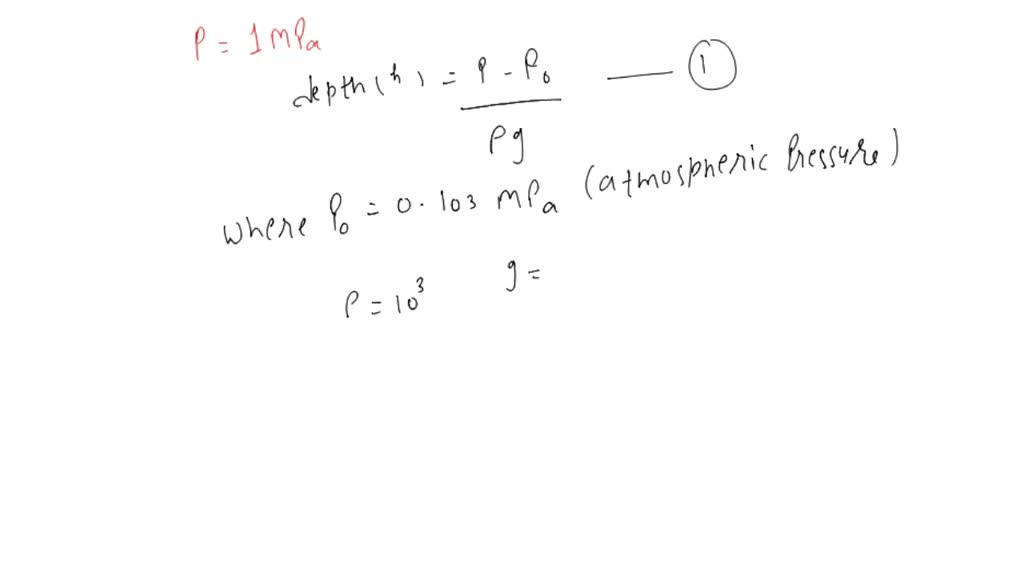 P = 1 MPa
depth(h) = P - P₀ / ρg —— ①
where P₀ = 0.103 MPa (atmospheric Pressure)
ρ = 10³ g =